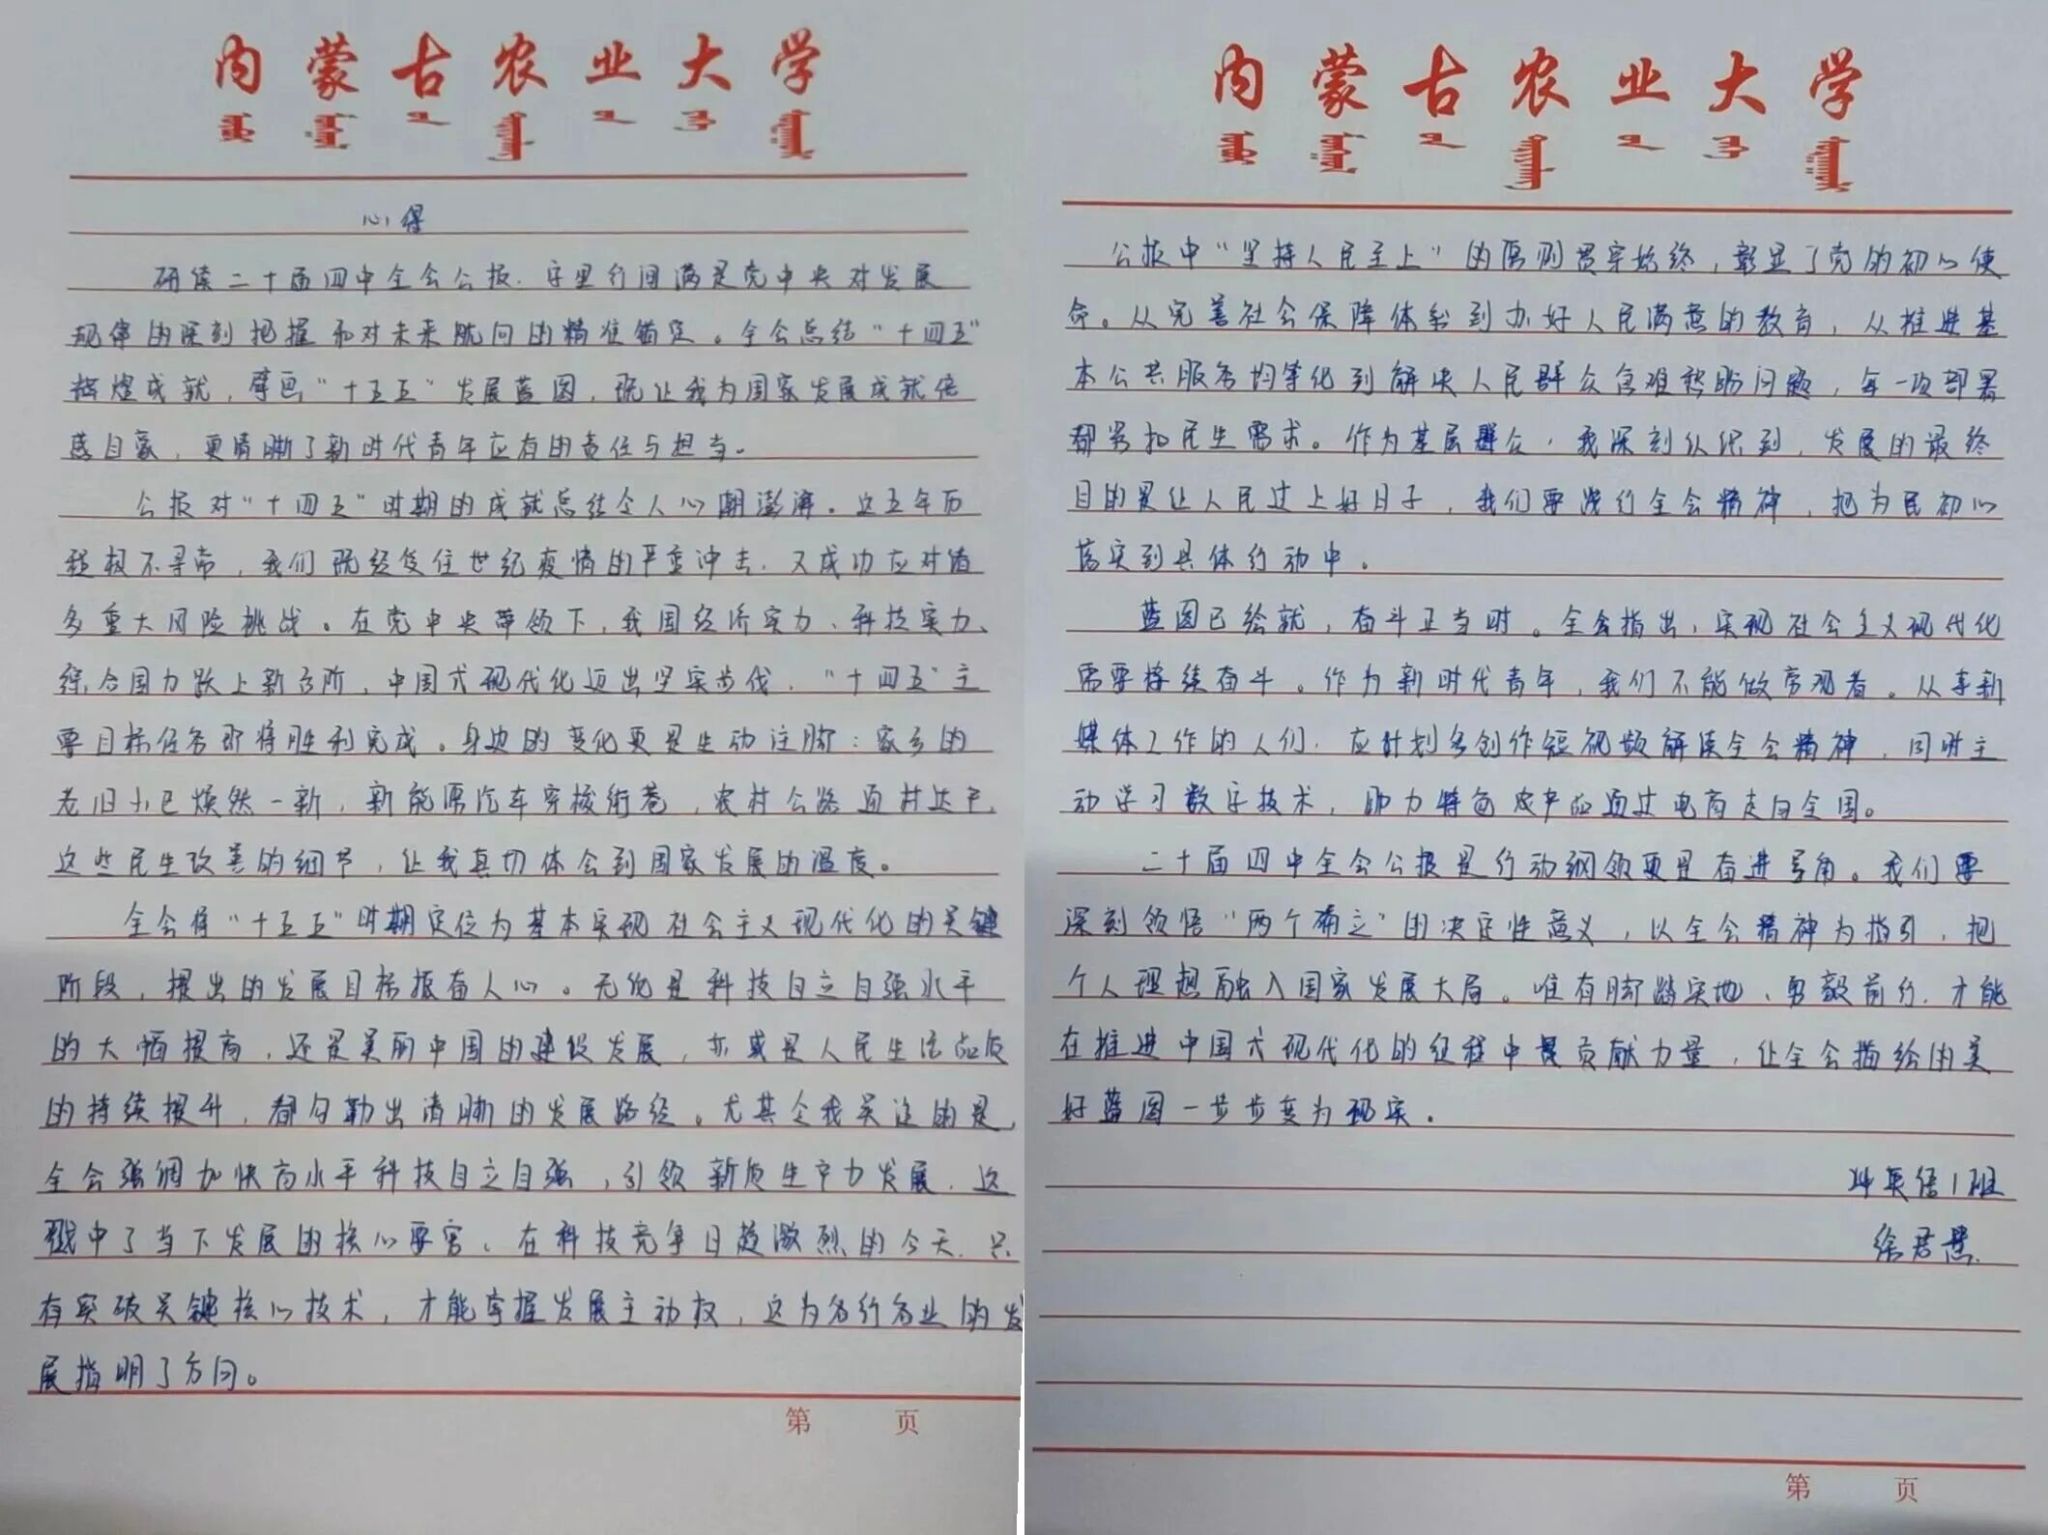 内蒙古农业大学
心得
研读二十届四中全会公报,字里行间满是党中央对发展
规律的深刻把握和对未来航向的精准锚定。全会总结“十四五”
辉煌成就,擘画“十五五”发展蓝图,既让我为国家发展成就倍
感自豪,更清晰了新时代青年应有的责任与担当。
公报对“十四五”时期的成就总结令人心潮澎湃。这五年历
程极不寻常,我们既经受住世纪疫情的严重冲击,又成功应对诸
多重大风险挑战。在党中央带领下,我国经济实力、科技实力、
综合国力跃上新台阶,中国式现代化迈出坚实步伐,“十四五”主
要目标任务即将胜利完成。身边的变化更是生动注脚:家乡的
老旧小已焕然一新,新能源汽车穿梭街巷,农村公路通村达户,
这些民生改善的细节,让我真切体会到国家发展的温度。
全会将“十五五”时期定位为基本实现社会主义现代化的关键
阶段,提出的发展目标振奋人心。无论是科技自立自强水平
的大幅提高,还是美丽中国的建设发展,亦或是人民生活品质
的持续提升,都勾勒出清晰的发展路径。尤其令我关注的是,
全会强调加快高水平科技自立自强,引领新质生产力发展,这
戳中了当下发展的核心要害。在科技竞争日趋激烈的今天,只
有突破关键核心技术,才能掌握发展主动权,这为各行各业的发
展指明了方向。
第 页
内蒙古农业大学
公报中“坚持人民至上”的原则贯穿始终,彰显了党的初心使
命。从完善社会保障体系到办好人民满意的教育,从推进基
本公共服务均等化到解决人民群众急难愁盼问题,每一项部署
都紧扣民生需求。作为基层群众,我深刻认识到,发展的最终
目的是让人民过上好日子,我们要践行全会精神,把为民初心
落实到具体行动中。
蓝图已绘就,奋斗正当时。全会指出,实现社会主义现代化
需要接续奋斗。作为新时代青年,我们不能做旁观者。从事新
媒体工作的人们,应计划多创作短视频解读全会精神,同时主
动学习数字技术,助力特色农产品通过电商走向全国。
二十届四中全会公报是行动纲领更是奋进号角。我们要
深刻领悟“两个确立”的决定性意义,以全会精神为指引,把
个人理想融入国家发展大局。唯有脚踏实地、勇毅前行,才能
在推进中国式现代化的征程中贡献力量,让全会描绘的美
好蓝图一步步变为现实。
英语1班
徐君慧
第 页